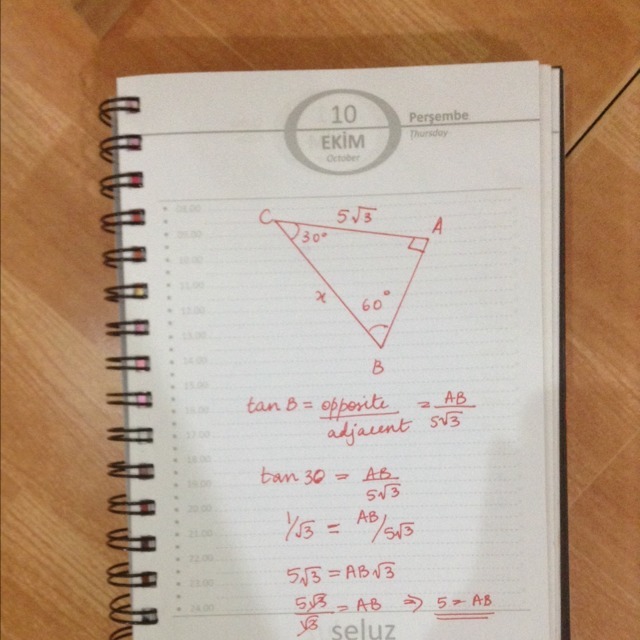 10
EKİM
October
Perşembe
Thursday
08.00
09.00
10.00
11.00
12.00
13.00
14.00
15.00
16.00
17.00
18.00
19.00
20.00
21.00
22.00
23.00
24.00
C 5√3 A
30°
x 60°
B
tan B = opposite/adjacent = AB/5√3
tan 30 = AB/5√3
1/√3 = AB/5√3
5√3 = AB√3
5√3/√3 = AB ⇒ 5 = AB
seluz